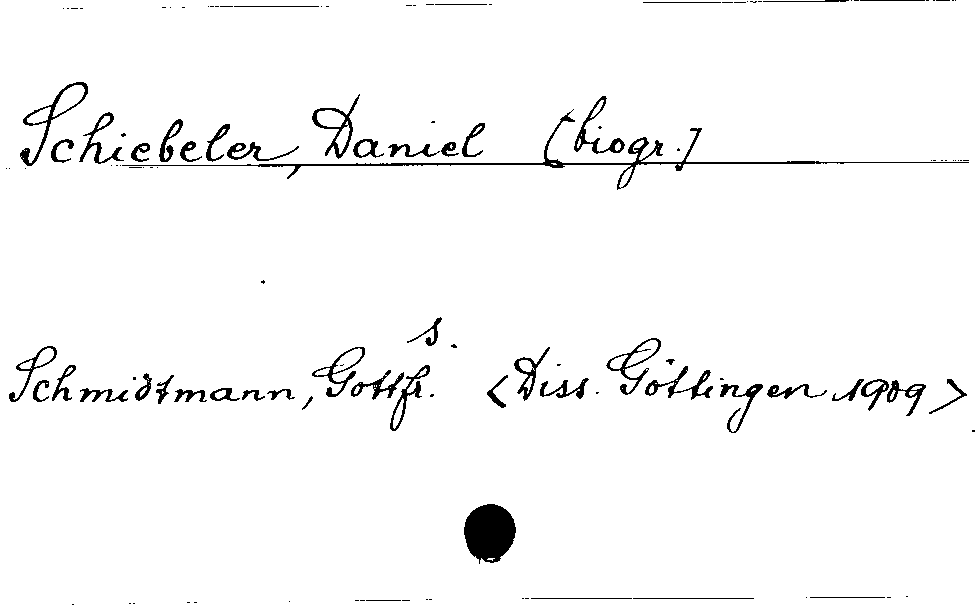 Schiebeler, Daniel [biogr.]
s.
Schmidtmann, Gottfr. <Diss. Göttingen 1909>